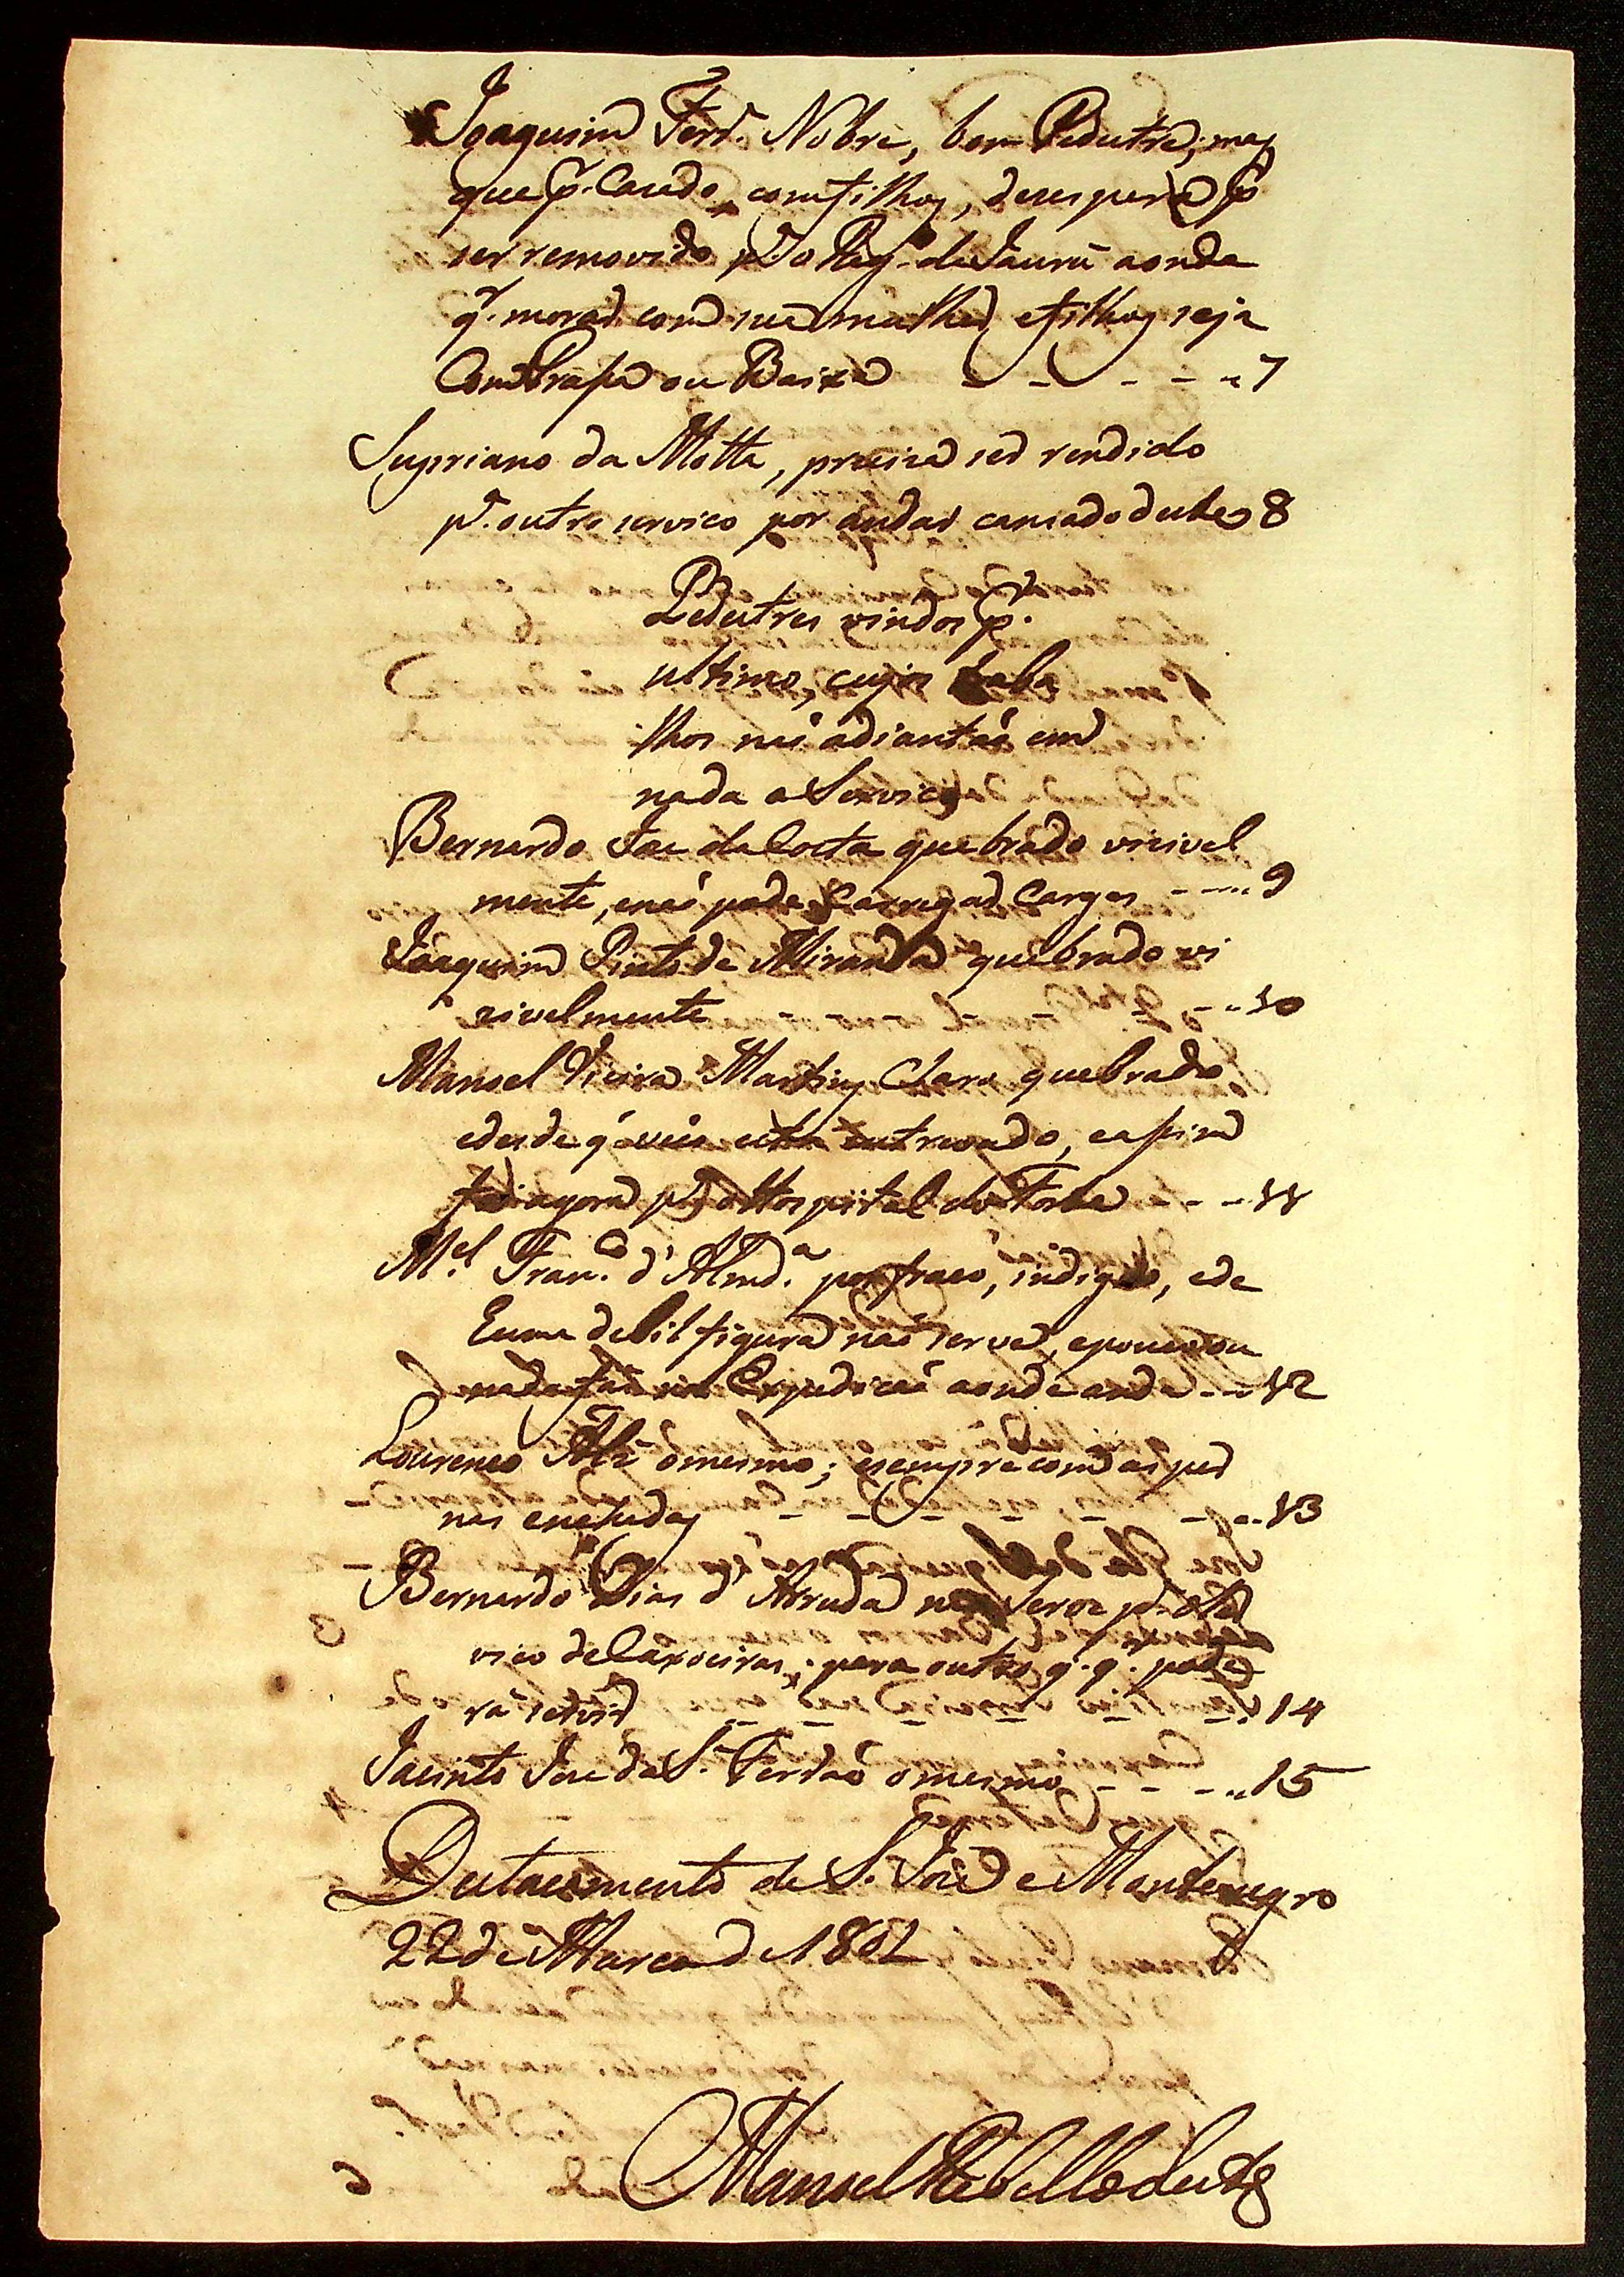 Joaquim Ferr.ª Nobre, bom Pedestre; mas
que p.r Casado, com filhos, desespera p.r
ser removido p.ª o Reg.º do Jaurú aonde
q.r morar com sua mulher, e filhos seja
Com Praça ou Baixa - - - - - 7
Supriano da Motta, preciza ser rendido
p.ª outro serviço por andar cansado deste 8
Pedestres vindos p.r
ultimo, cujos traba
lhos naõ adiantaõ em
nada o Serviço
Bernardo Joze da Costa quebrado visivel
mente, e naõ pode Carregar Cargas - - - 9
Joaquim Pinto de Miranda quebrado vi
zivelmente - - 10
Manoel Vieira Martins Claro quebrado
e desde q' veio está entrevado, e assim
foi agora p.ª o Hospital do Forte - - - 11
M.el Fran.co d'Almd.a por fraco, indigno, e de
huma debil figura naõ serve, e pouco ou
nada faz na Expediçaõ aonde anda - - 12
Lourenço Alz' o mesmo; e sempre com as per
nas enchadas - - - - - - 13
Bernardo Dias d'Arruda naõ Serve p.ª o Ser
viço de Caxoeiras; para outro q.' q.r pode
rá servir - - - - - - 14
Jacinto Joze da S.ª Ferraõ o mesmo - - - - 15
Destacamento de S. Joze de Montenegro
22 de Março de 1802
Manoel Rebello Leite